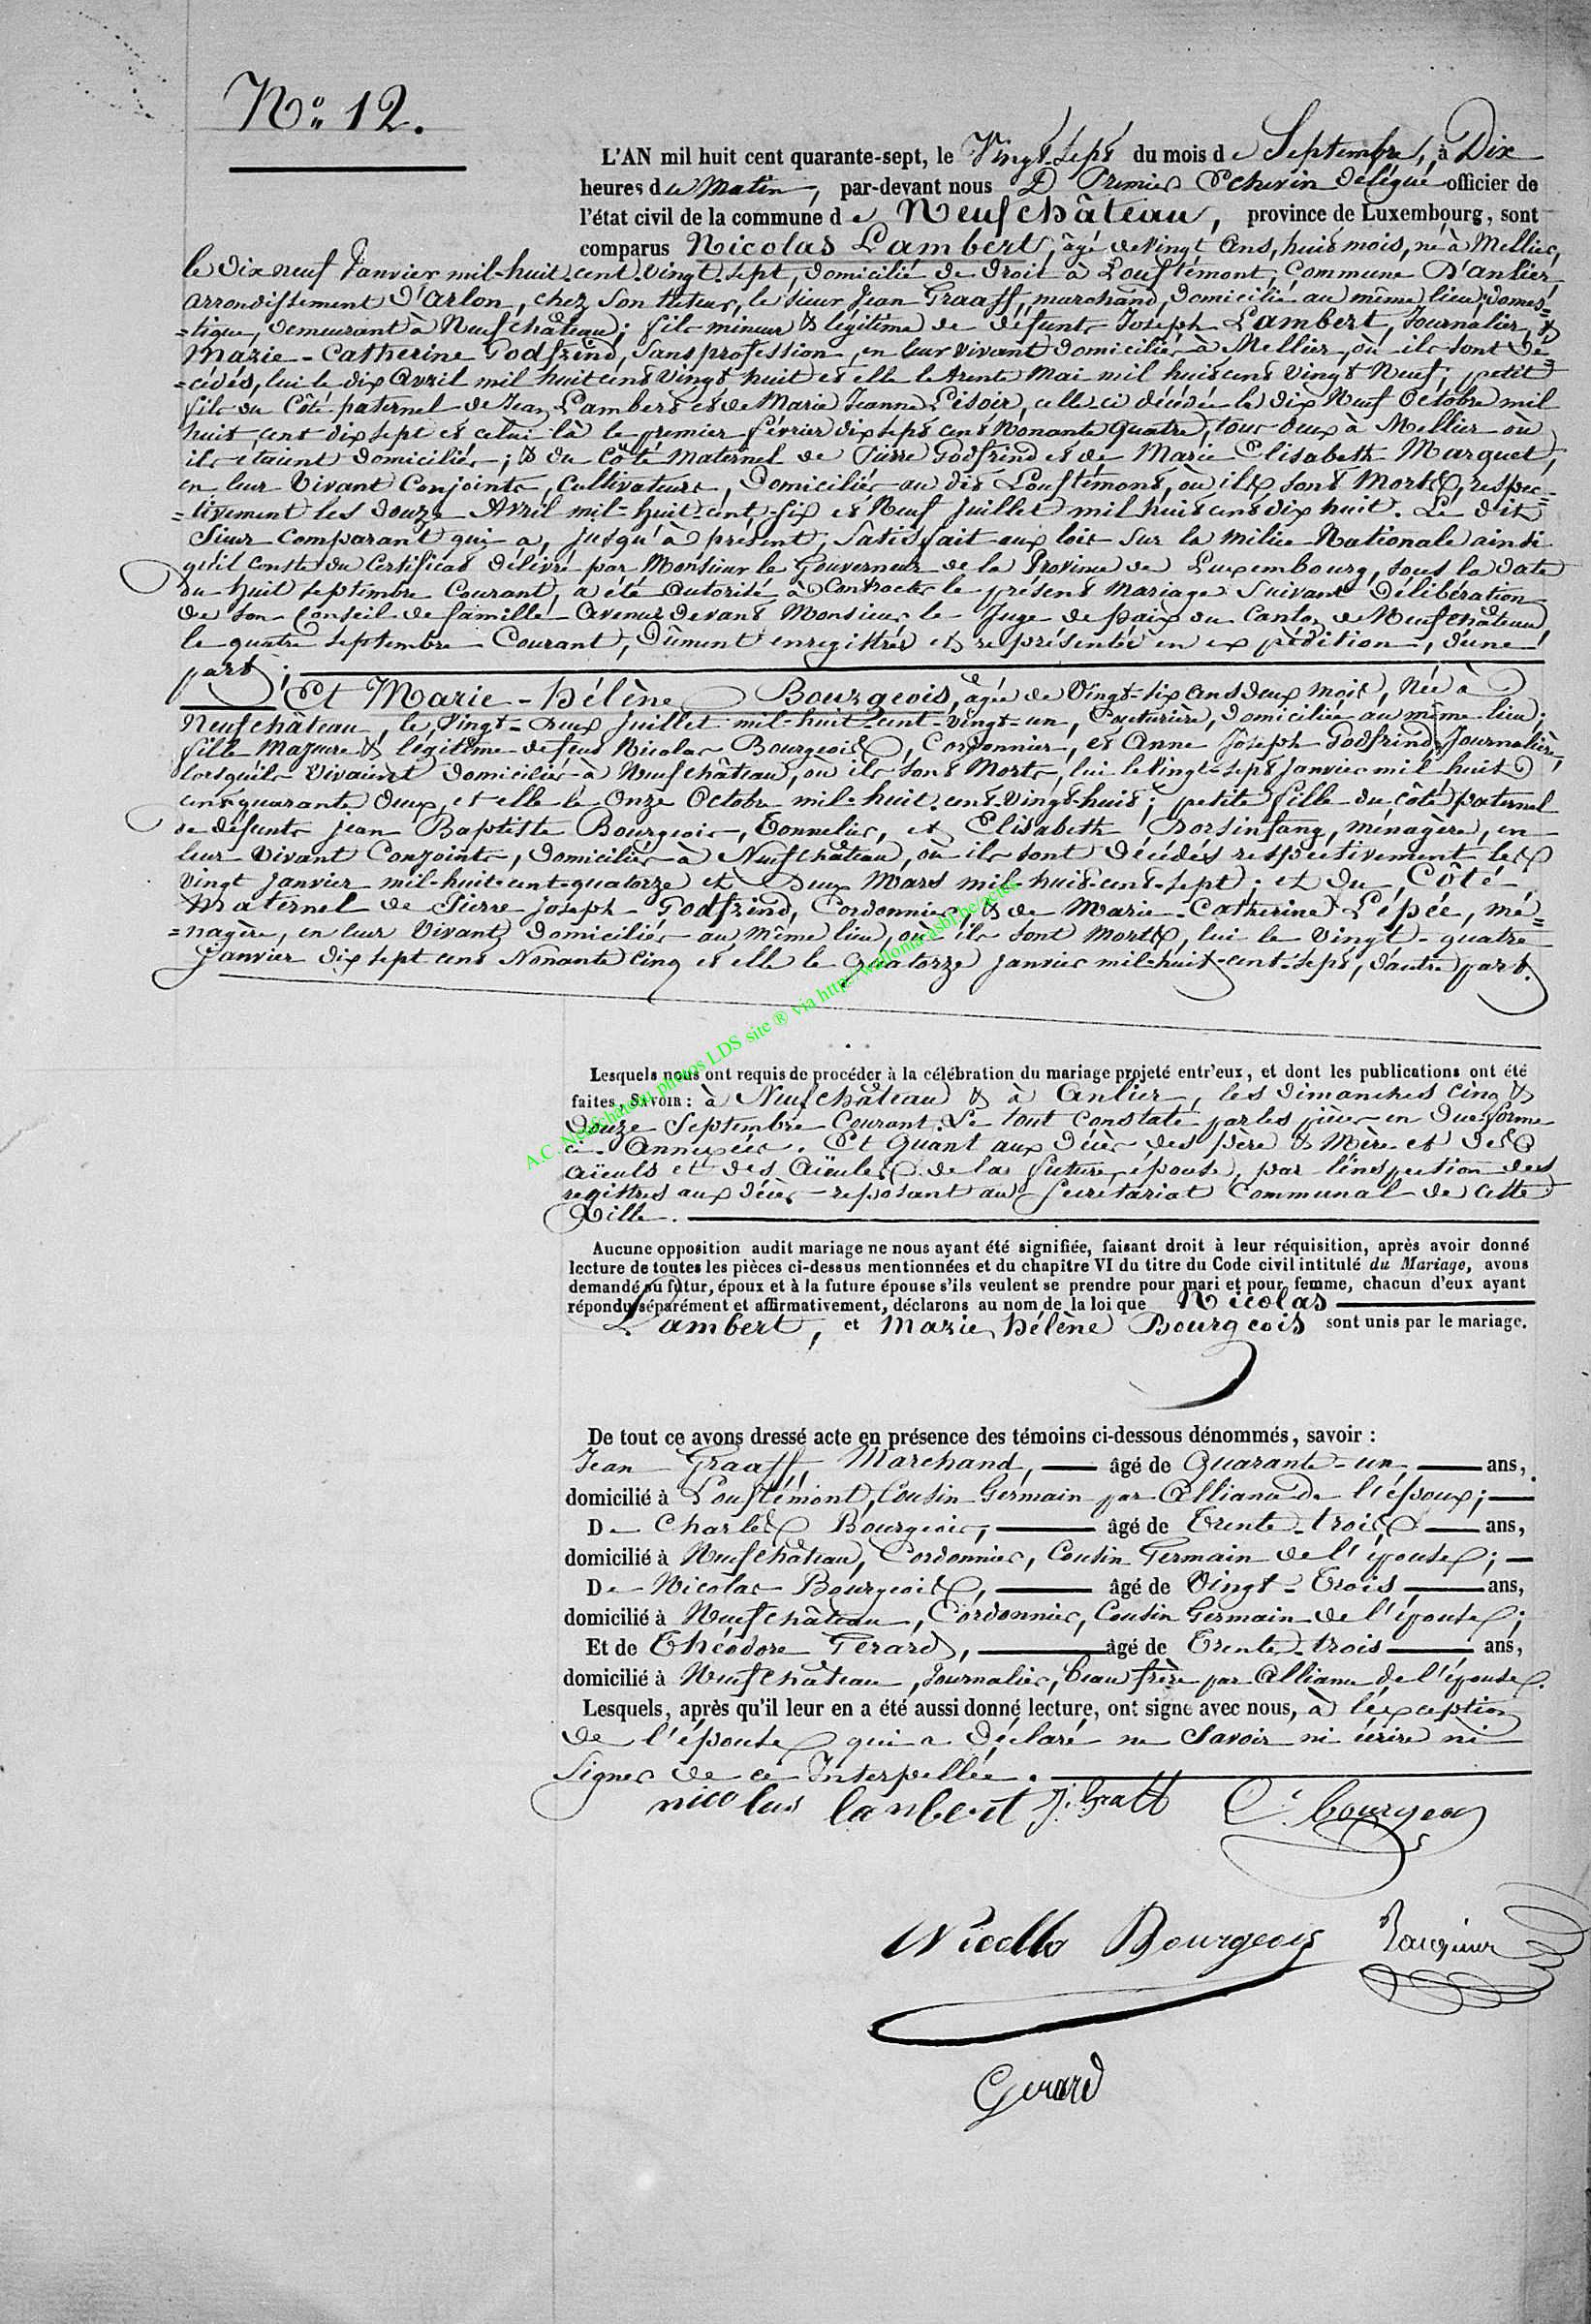 N.o 12.
L'AN mil huit cent quarante-sept, le Vingt-Sept du mois de Septembre, à Dix
heures du Matin, par-devant nous Premier Echevin délégué officier de
l'état civil de la commune de Neufchâteau, province de Luxembourg, sont
comparus Nicolas Lambert, âgé de vingt ans, huit mois, né à Mellier,
le dix neuf Janvier mil-huit-cent-vingt-sept, domicilié de droit à Louftémont, Commune D'anlier,
arrondissement D'arlon, chez Son tuteur, le sieur Jean Graaff, marchand, domicilié au même lieu; domes=
=tique, demeurant à Neufchâteau; fils mineur & légitime de défunts Joseph Lambert, Journalier, &
Marie-Catherine Godfrind, Sans profession, en leur vivant domiciliés à Mellier, où ils sont dé=
=cédés, lui le dix Avril mil huit cent Vingt huit et elle le trente Mai mil huit cent Vingt Neuf; petit
fils du Côté paternel de Jean Lambert et de Marie Jeanne Lisoir, celle ci décédée le dix Neuf Octobre mil
huit cent dix sept et celui là le premier février dix sept cent Nonante quatre, tous deux à Mellier où
ils étaient domiciliés; & du Côté Maternel de Pierre Godfrind et de Marie Elisabeth Marquet,
en leur Vivant Conjoints, Cultivateurs, Domiciliés au dit Louftémont, où ils sont Morts, respec=
=tivement les douze Avril mil-huit-cent-six et Neuf Juillet mil huit cent dix huit. Le dit
Sieur Comparant qui a, jusqu'à présent, Satisfait aux lois sur la milice Nationale ainsi
qu'il conste du Certificat délivré par Monsieur le Gouverneur de la Province de Luxembourg, sous la date
du huit Septembre Courant, a été autorisé à Contracter le présent Mariage Suivant Délibération
de Son Conseil de famille avenue devant Monsieur le Juge de paix du Canton de Neufchâteau,
le quatre septembre Courant, Dûment enregistrée et représentée en expédition, d'une
part;
Et Marie-hélène Bourgeois, âgée de Vingt-six ans deux mois, Née à
Neufchâteau, le Vingt-Deux Juillet mil-huit-cent-vingt-un, Couturière, domiciliée au même lieu;
fille Majeure & légitime de feus Nicolas Bourgeois, Cordonnier, et Anne Joseph Godfrind, Journalière,
lorsqu'ils Vivaient domiciliés à Neufchâteau, où ils sont Morts, lui le Vingt-sept Janvier mil huit
cent quarante deux, et elle le Onze Octobre mil-huit-cent-vingt-huit; petite fille du côté paternel
de défunts Jean Baptiste Bourgeois, Tonnelier, et Elisabeth Dorsinfang, ménagère, en
leur Vivant Conjoints, Domiciliés à Neufchâteau, où ils sont Décédés respectivement les
vingt Janvier mil-huit-cent-quatorze et Deux Mars mil-huit-cent-sept; et du Côté
Maternel de Pierre Joseph Godfrind, Cordonnier, & de Marie-Catherine Lépée, mé=
=nagère, en leur Vivant domiciliés au même lieu, où ils sont morts, lui le Vingt-quatre
Janvier dix sept cent Nonante cinq et elle le Quatorze Janvier mil-huit-cent-sept, d'autre part.
Lesquels nous ont requis de procéder à la célébration du mariage projeté entr'eux, et dont les publications ont été
faites, SAVOIR: à Neufchâteau & à Anlier, les dimanches cinq &
Douze Septembre Courant. Le tout constaté par les pièces en due forme
ci-Annexées. Et Quant aux Décès des père & Mère et des
aïeuls et des Aïeules de la future épouse, par l'inspection des
registres aux décès reposant au Secrétariat Communal de cette
Ville.
Aucune opposition audit mariage ne nous ayant été signifiée, faisant droit à leur réquisition, après avoir donné
lecture de toutes les pièces ci-dessus mentionnées et du chapitre VI du titre du Code civil intitulé du Mariage, avons
demandé au futur, époux et à la future épouse s'ils veulent se prendre pour mari et pour femme, chacun d'eux ayant
répondu séparément et affirmativement, déclarons au nom de la loi que Nicolas
Lambert, et Marie, hélène Bourgeois sont unis par le mariage.
De tout ce avons dressé acte en présence des témoins ci-dessous dénommés, savoir :
Jean Graaff, Marchand, âgé de Quarante-un, ans,
domicilié à Louftémont, Cousin Germain par Alliance de l'époux;
De Charles Bourgeois, âgé de Trente-trois ans,
domicilié à Neufchâteau, Cordonnier, Cousin Germain de l'épouse;
De Nicolas Bourgeois, âgé de Vingt-Trois ans,
domicilié à Neufchâteau, Cordonnier, Cousin Germain de l'épouse;
Et de Théodore Gerard, âgé de Trente-trois ans,
domicilié à Neufchâteau, Journalier, beau frère par Alliance de l'épouse.
Lesquels, après qu'il leur en a été aussi donné lecture, ont signé avec nous, à l'exception
de l'épouse qui a Déclaré ne Savoir ni écrire ni
Signer de ce Interpellée.
nicolas lanbert J. Graff C. bourgeois
Nicollas Bourgeois
Gerard
A.C. Neufchateau photos LDS site ® via http://wallonia-asbl.be/actes